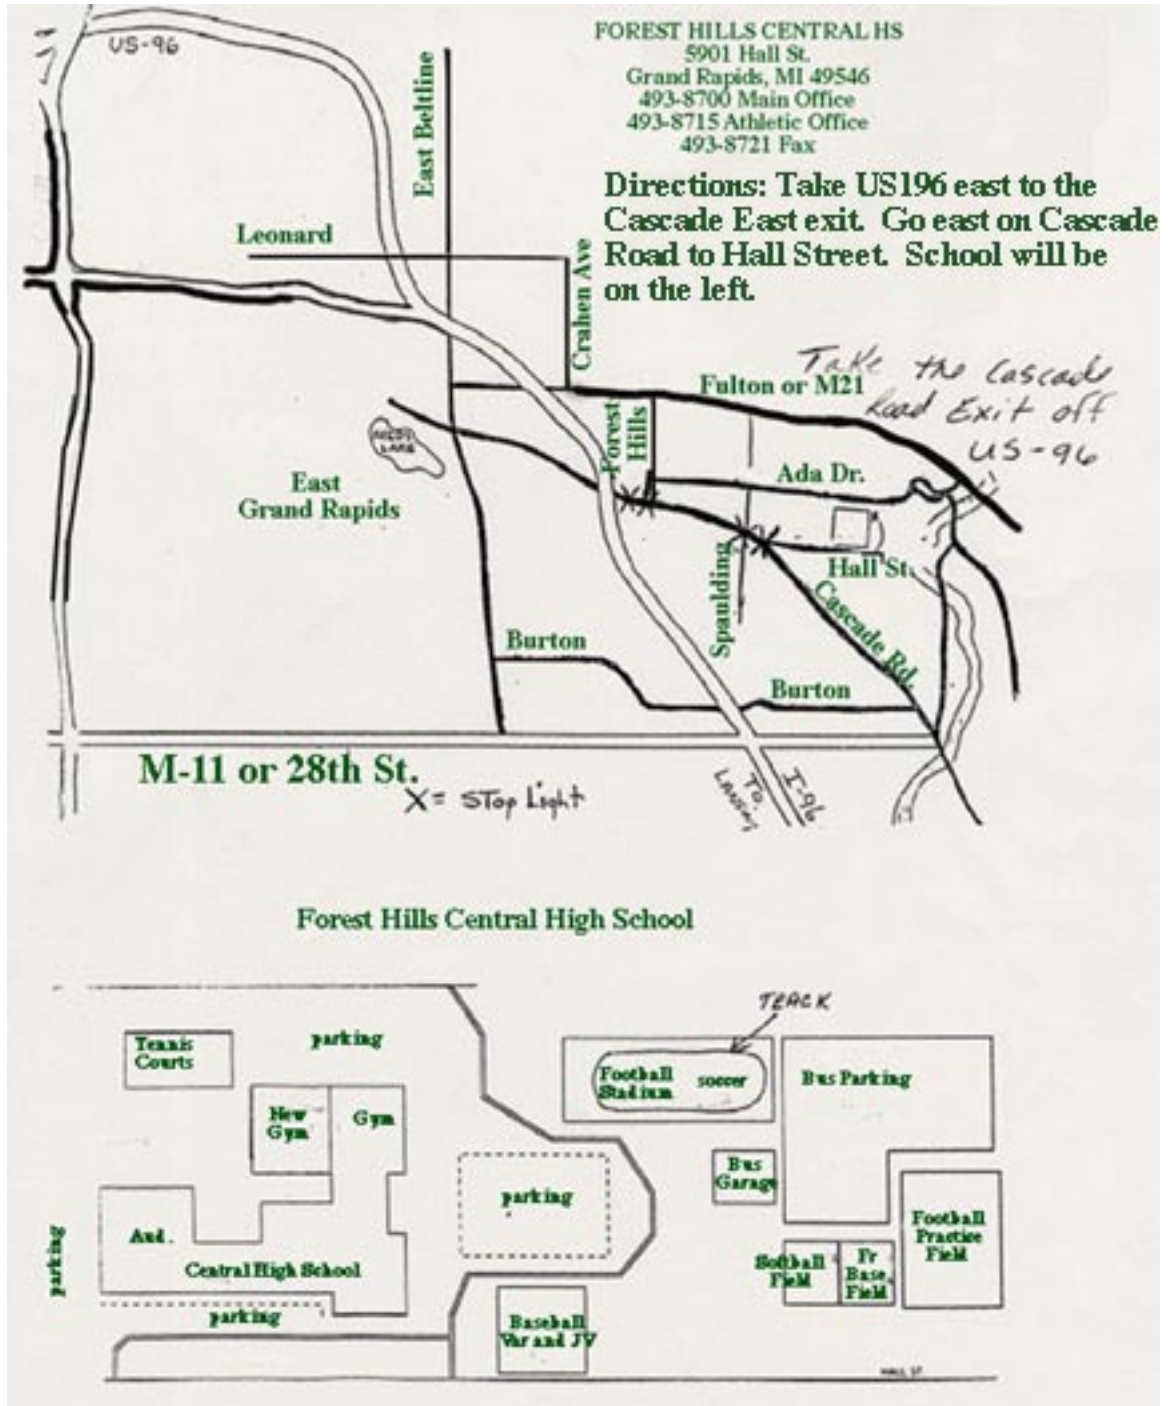 US-96
FOREST HILLS CENTRAL HS
5901 Hall St.
Grand Rapids, MI 49546
493-8700 Main Office
493-8715 Athletic Office
493-8721 Fax
East Beltline
Directions: Take US196 east to the
Cascade East exit. Go east on Cascade
Road to Hall Street. School will be
on the left.
Leonard
Crahen Ave
Take the Cascade
Road Exit off
US-96
Fulton or M21
Forest
Hills
Ada Dr.
East
Grand Rapids
LAKE
Hall St.
Spaulding
Cascade Rd.
Burton
Burton
M-11 or 28th St.
X = Stop Light
TO
LANSING
I-96
Forest Hills Central High School
TRACK
Tennis
Courts
parking
Football
Stadium
soccer
Bus Parking
New
Gym
Gym
Bus
Garage
parking
Football
Practice
Field
parking
Aud.
Central High School
Softball
Field
Fr
Base
Field
parking
Baseball
Var and JV
HALL ST.